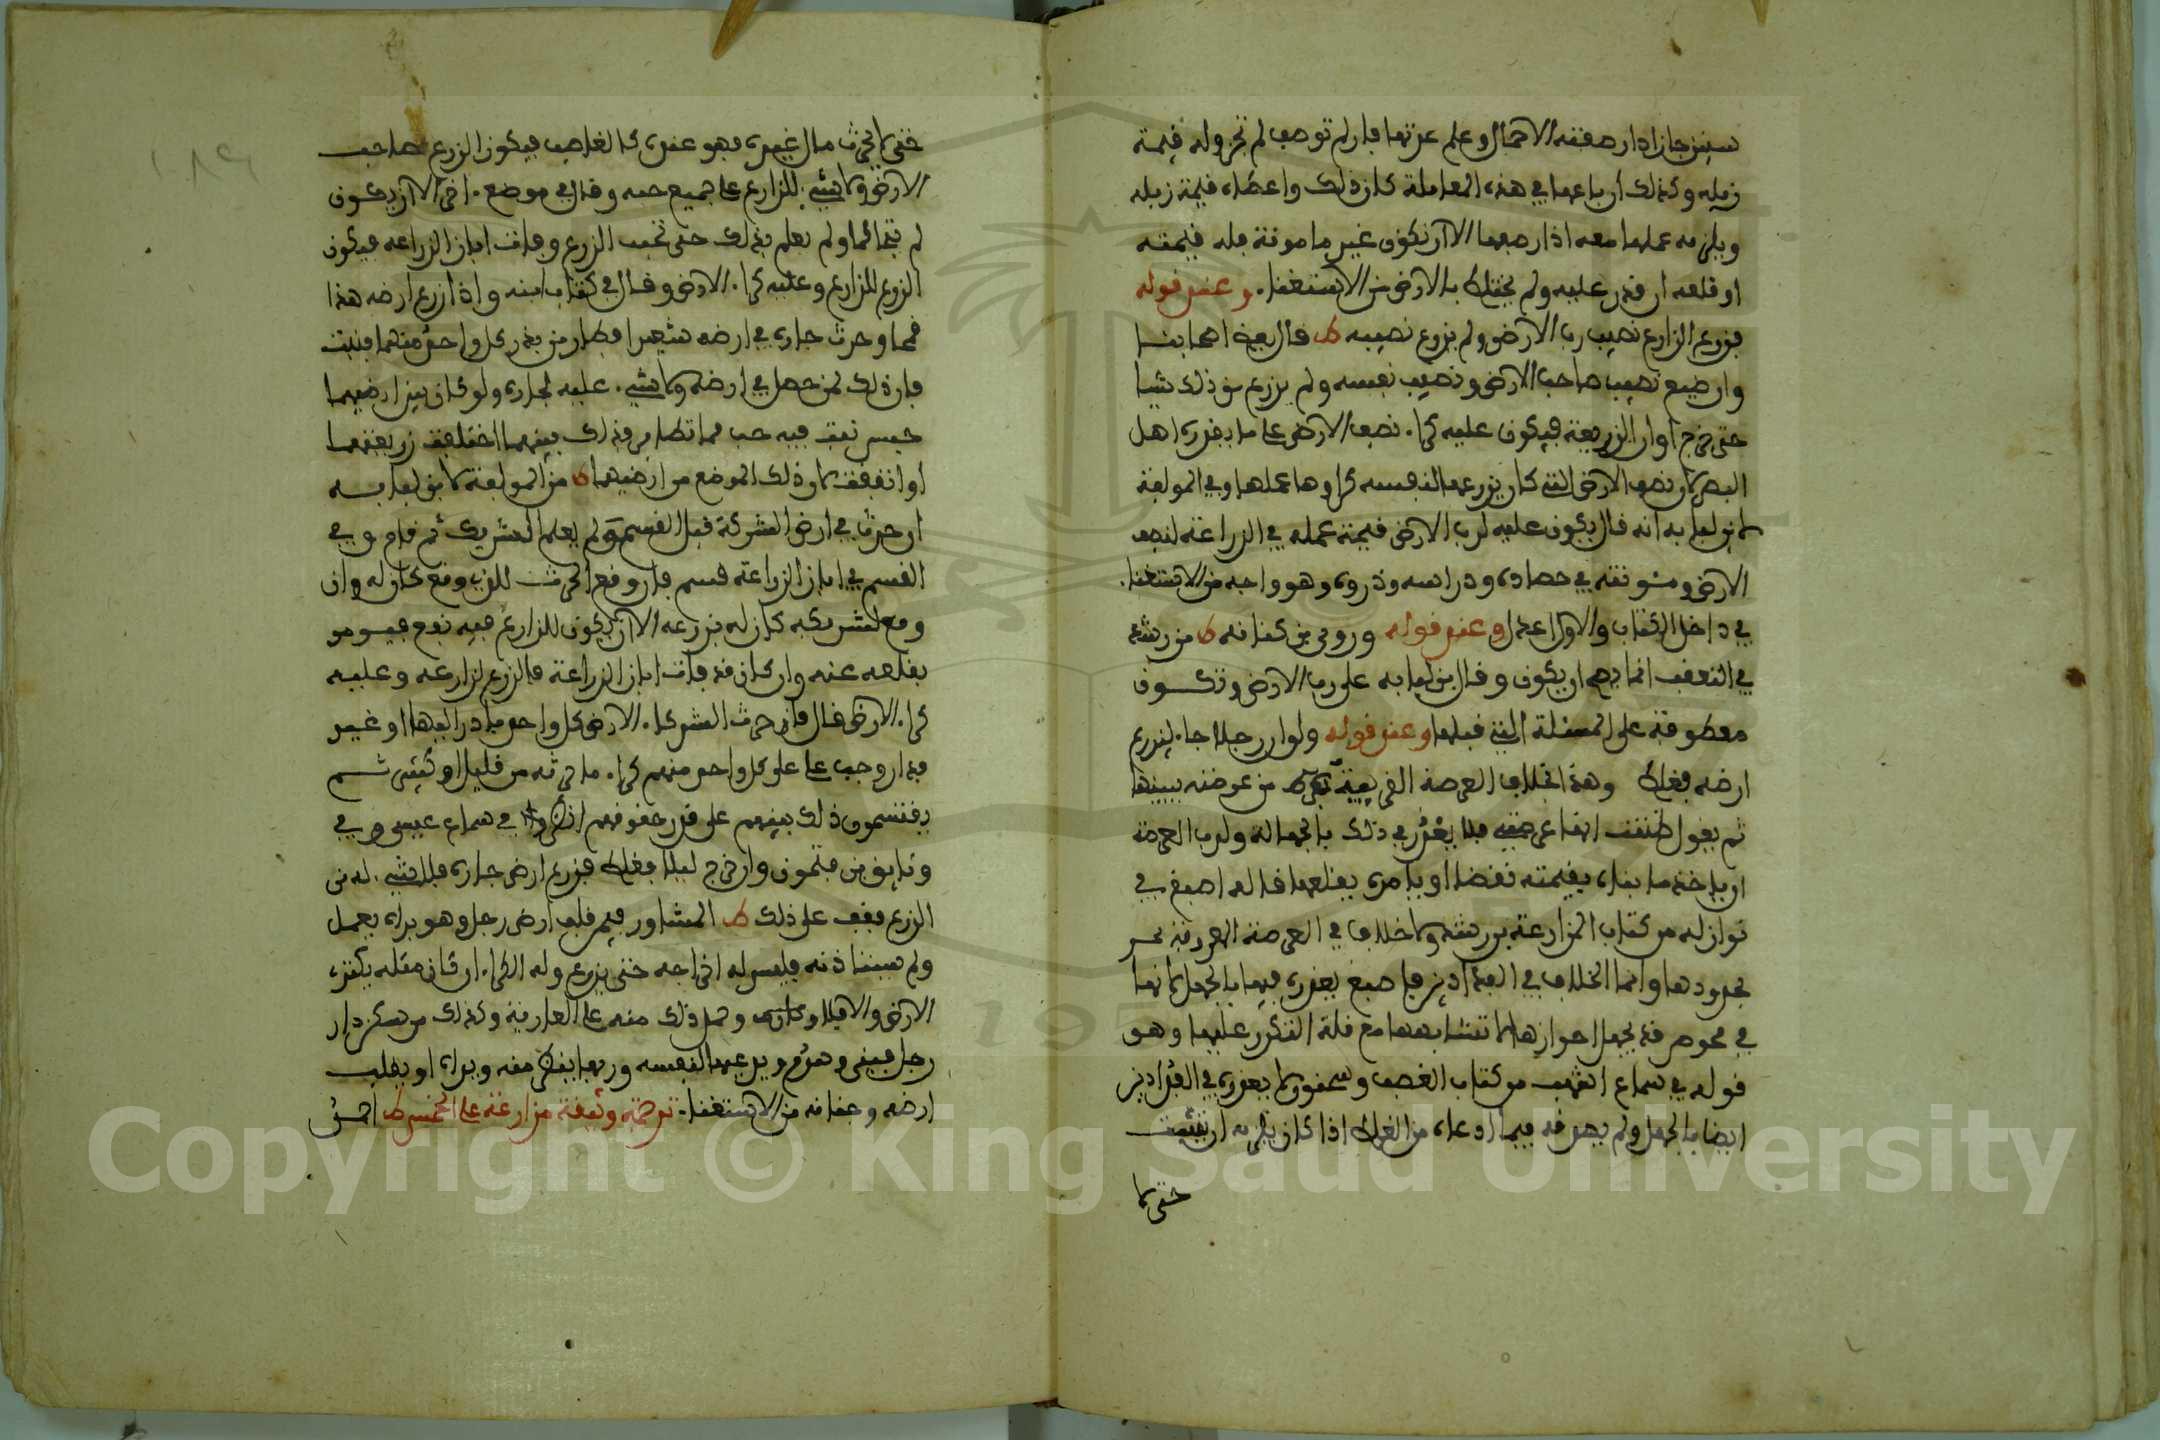 سنين جاز اذا رصفته الاحمال وعلم عدتها فان لم توصف لم تجز وله قيمة
زبله وكذلك ان باعها في هذه المعاملة كان ذلك واعطاه قيمة زبله
ويلزمه عملها معه اذا رصفها الا ان تكون غير مامونة فله قيمته
او قلعه ان قدر عليه ولم يختلط بالارض من الاستغناء. وعند قوله
فزرع الزارع نصيب رب الارض ولم يزرع نصيبه ط قال بعض اصحابنا
وان ضيع نصيب صاحب الارض ونصيب نفسه ولم يزرع من ذلك شيا
حتى خرج اوان الزريعة فيكون عليه كراء نصف الارض على ما يقدره اهل
البصر لان نصف الارض التي كان يزرعها لنفسه كراوها عملها وفي المولفة
لابن لبابة انه قال يكون عليه لرب الارض قيمة عمله في الزراعة لنصف
الارض ومئونته في حصاده ودراسه وذروه وهو واجبه من الاستغناء.
في داخل الكتاب والاول اعدل وعند قوله وروى بن كنانة ط من رشد
في التعفف انما يصح ان يكون وقال بن لبابة على رب الارض وتكون
معطوفة على المسئلة التي قبلها وعند قوله ولو ان رجلا جاء ليزرع
ارضه فغلط وهذا بخلاف العرصة القريبة ط من عرضته يبنيها
ثم يقول ظننت انها عرصتي فلا يعذر في ذلك بالجهالة ولرب العرصة
ان ياخذ ما بناه بقيمته نقضا او يامره بقلعها قاله اصبغ في
نوازله من كتاب المزارعة بن رشد ولا خلاف في العرصة المعروفة
بحدودها وانما الخلاف في الفدادين فاصبغ يعذره فيها بالجهل لانها
في فحوص قد يجهل احوازها لتشابهها مع قلة التكرر عليها وهو
قوله في سماع اشهب من كتاب الغصب وسحنون لا يعذره في الفدادين
ايضا بالجهل ولم يصدقه فيما ادعاه من الغلط اذا كان يلزمه ان يتثبت
حتى لا
حتى لا يحرث مال غيره فهو عنده كالغاصب فيكون الزرع لصاحب
الارض ولا شيء للزارع على جميع حبه وقال في موضع اخر الا ان يكون
لم يتحاكما ولم يعلم بذلك حتى تحبب الزرع وفات ابان الزراعة فيكون
الزرع للزارع وعليه كراء الارض وقال في كتاب ابنه واذا زرع ارضه هذا
قمحا وحرث جاره في ارضه شعيرا فطار من بذر كل واحد منهما فنبت
فان ذلك لمن حصل في ارضه ولا شيء عليه لجاره ولو كان بين ارضيهما
حبس نبت فيه حب مما تطاير فذلك بينهما اختلفت زريعتهما
او اتفقت لان ذلك الموضع من ارضيهما ط من المولفة لابن لبابة
ان حرث في ارض الشركة قبل القسم ولم يعلم الشريك ثم قام في
القسم في ابان الزراعة قسم فان وقع الحرث للذي وقع كان له وان
وقع لشريكه كان له بزرعه الا ان يكون للزارع فيه نفع فيومر
بقلعه عنه وان كان قد فات ابان الزراعة فالزرع لزارعه وعليه
كراء الارض قال فان حرث الشركاء الارض كل واحد فدادا بعينها او غير
فدان وجب على كل واحد منهم كراء ما حرثه من قليل او كثير ثم
يقتسمون ذلك بينهم على قدر حقوقهم في سماع عيسى وفي
وثايق بن فتحون وان خرج ليلا فغلط فزرع ارض جاره فلا شيء له من
الزرع فقف على ذلك ط المشاور فيمن قلب ارض رجل وهو يراه يعمل
ولم يستاذنه فليس له اخراجه حتى يزرع وله الكراء ان كان مثله يكتري
الارض والا فلا وحمل ذلك منه على العارية وكذلك من سكن دار
رجل فيبني وهدم ويدعيها لنفسه وربها ينظر معه ويراه او يقلب
ارضه وجناته من الاستغناء. ترجمة وثيقة مزارعة على الخمس ط